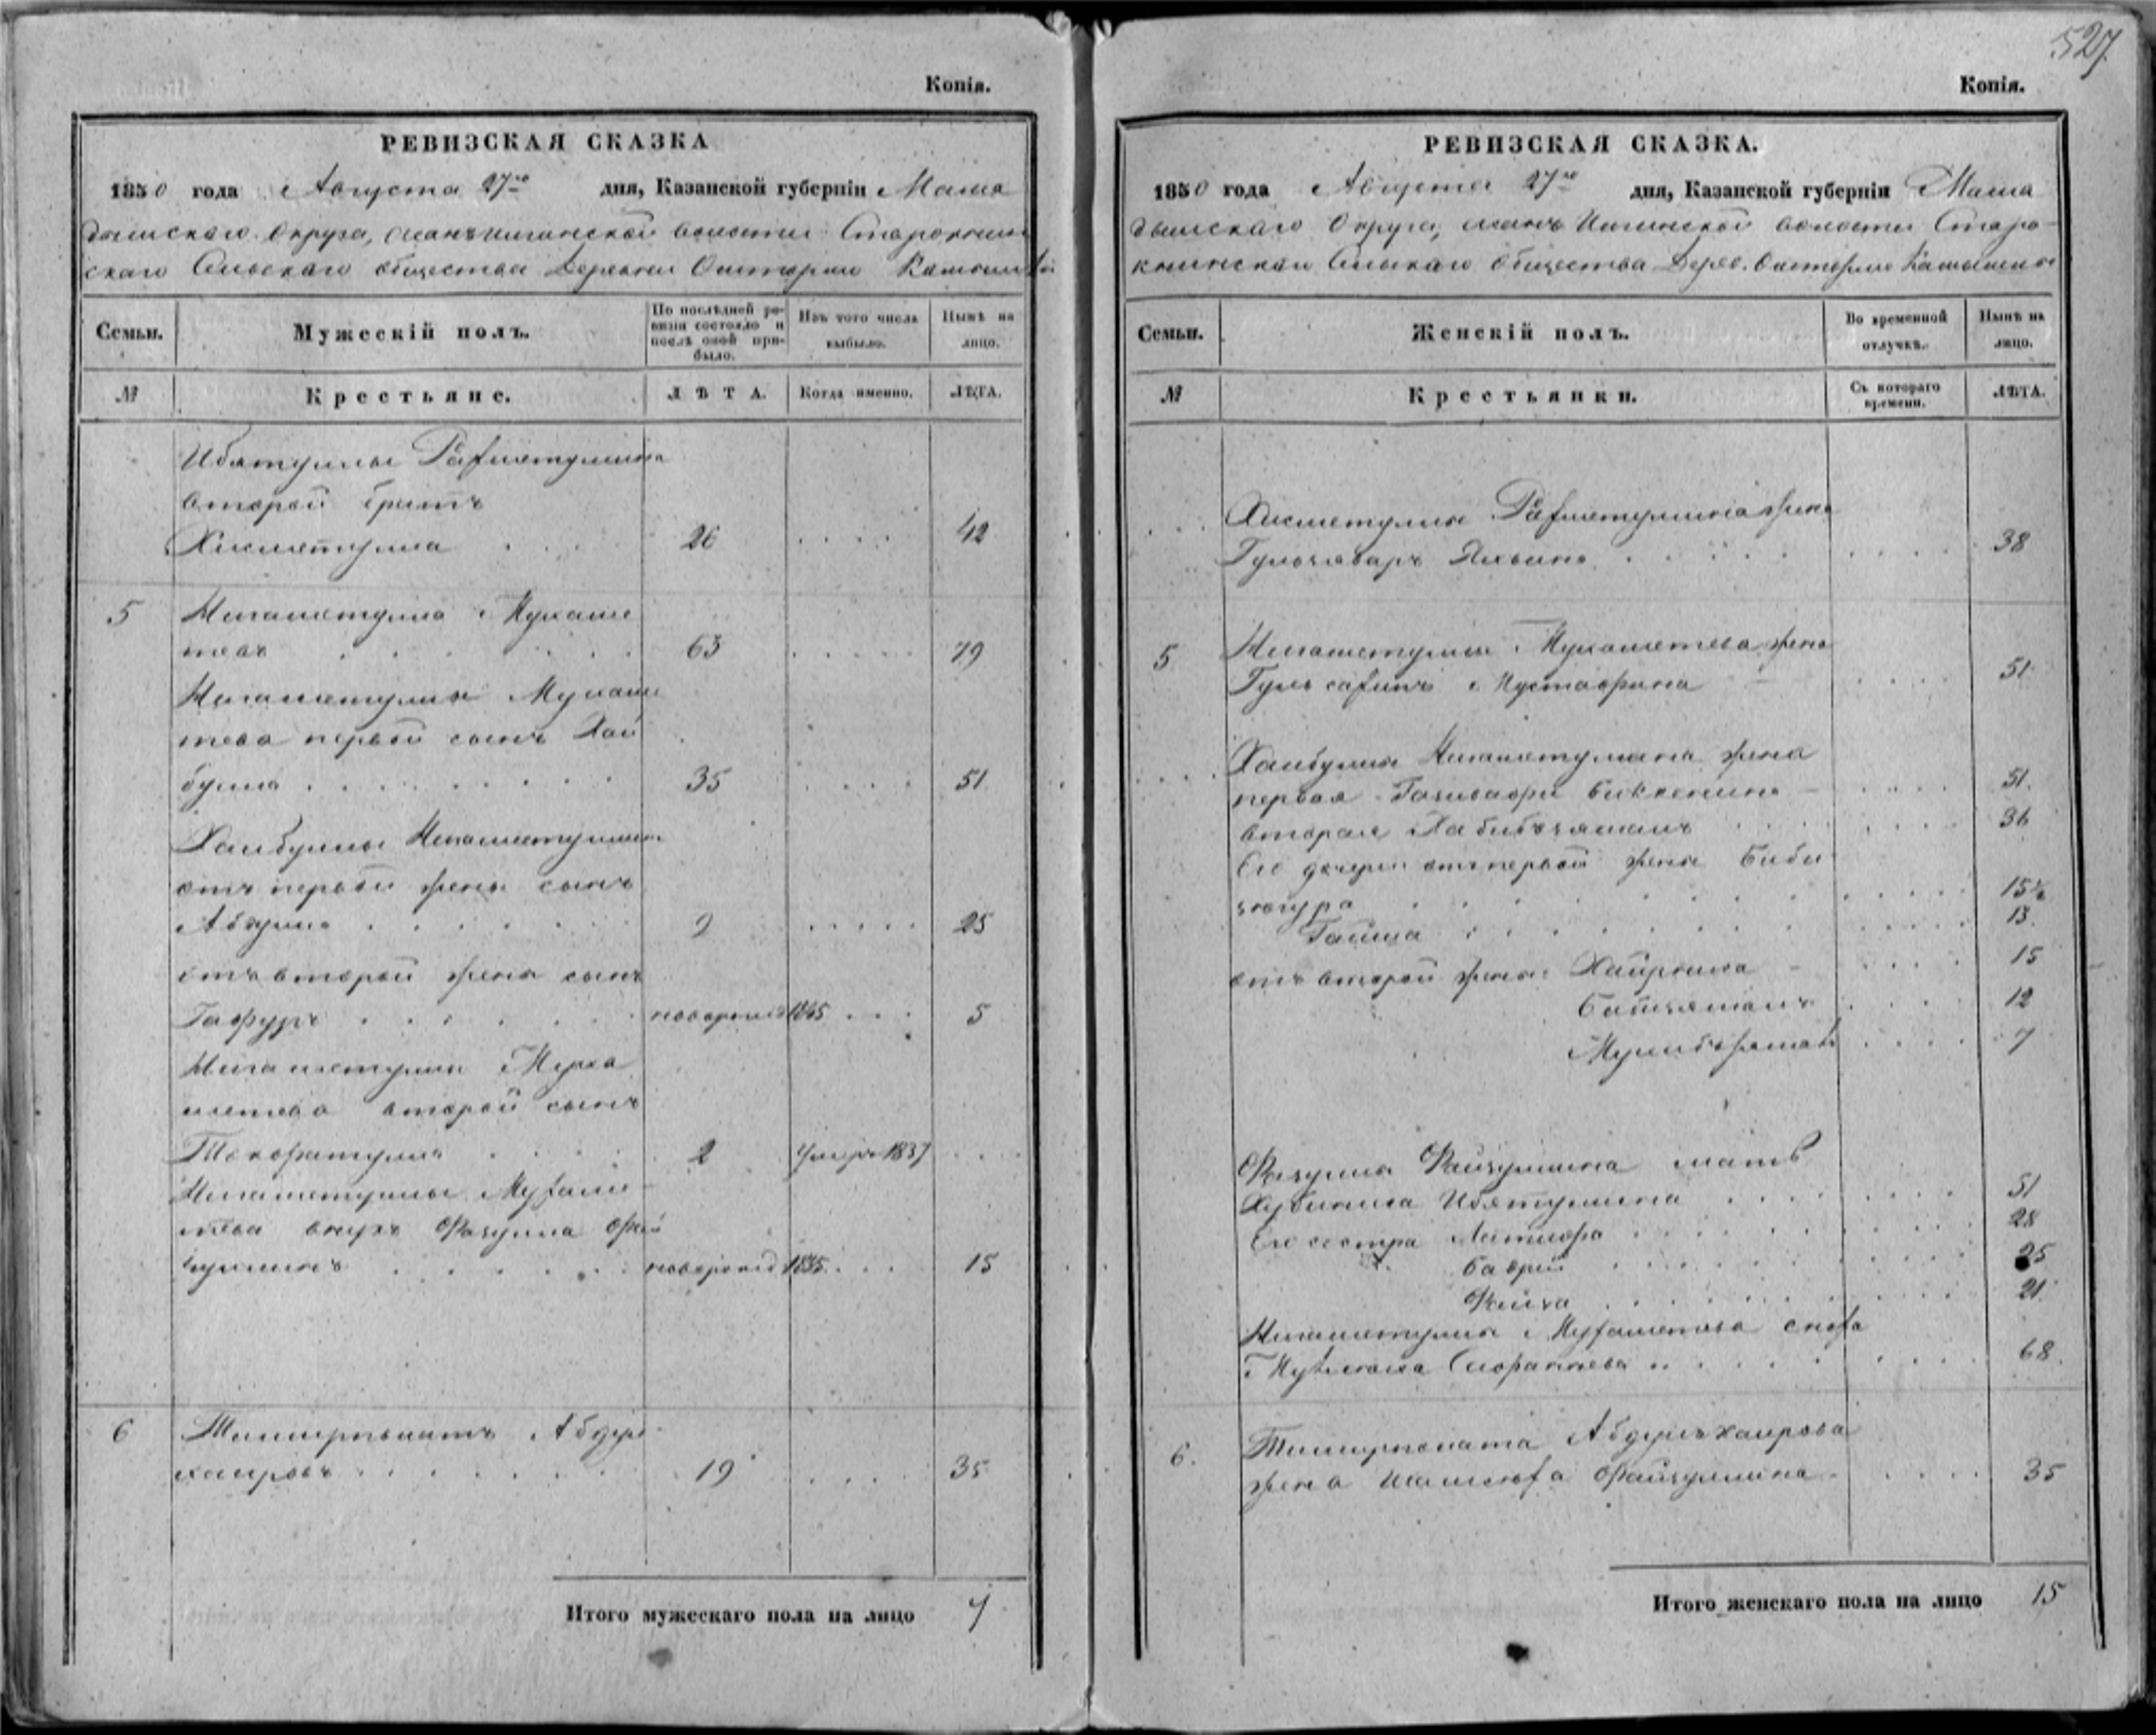 527
Копія.
РЕВИЗСКАЯ СКАЗКА
1850 года Августа 27го дня, Казанской губерніи Мама
дышскаго Округа, волости Староклин
скаго Сельскаго общества Деревни
Семьи.
Мужескій полъ.
По послѣдней ре-
визіи состояло и
послѣ оной при-
было.
Изъ того числа
выбыло.
Нынѣ на
лицо.
№
Крестьяне.
ЛѢТА.
Когда именно.
ЛѢТА.
Ибятуллы
второй братъ
Хисметулла . . . 26 . . . . 42
5 Нигаметулла Мухаме
товъ . . . . 63 . . . . . 79
Нигаметуллы Мухаме
това первой сынъ Хай
булла . . . . . . . 35 . . . . 51
Хайбуллы Нигаметуллина
отъ первой жены сынъ
Абзулла . . . . . 9 . . . . . 25
отъ второй жены сынъ
Гафуръ . . . . . новорожд 1845 . . . 5
Нигаметуллы Муха
метева второй сынъ
. . . . 2 Умеръ 1837 . . .
Нигаметуллы
това внукъ Фазулла Фай
зуллинъ . . . . . новорожд 1835 . . . 15
6 Абдул
хаировъ . . . . . . 19 . . . . 35
Итого мужескаго пола на лицо 7
Копія.
РЕВИЗСКАЯ СКАЗКА.
1850 года Августа 27го дня, Казанской губерніи Мама
дышскаго Округа, волости Старо-
клинскаго Сельскаго общества Дерев.
Семьи.
Женскій полъ.
Во временной
отлучкѣ.
Нынѣ на
лицо.
№
Крестьянки.
Съ котораго
времени.
ЛѢТА.
Хисметуллы жена
Гульчеваръ Яхьина . . . . . . . . 38
5 Нигаметуллы Мухаметева жена
Гуль Мустафина . . . . 51
Хайбуллы Нигаметуллина жена
первая Биккенина . . . . 51.
вторая Хабибзяманъ . . . . . . . 36
Его дочери отъ первой жены Биби
зюгура . . . . . . . . . . . 15½
Гайша . . . . . . . . . . . 13.
отъ второй жены: Хайрниса . . . . 15
Бибизяманъ . . . . 12
. . . . 7
Фазуллы Файзуллина мать
Хубиниса Ибятуллина . . . . . . . . 51
Его сестра Латифа . . . . . . . . . 28
Бадри . . . . . . . . . . 25
Файза . . . . . . . . . . 21.
Нигаметуллы сноха
. . . . . . . 68.
6. Абдулхаирова
жена Файзуллина . . . . 35
Итого женскаго пола на лицо 15